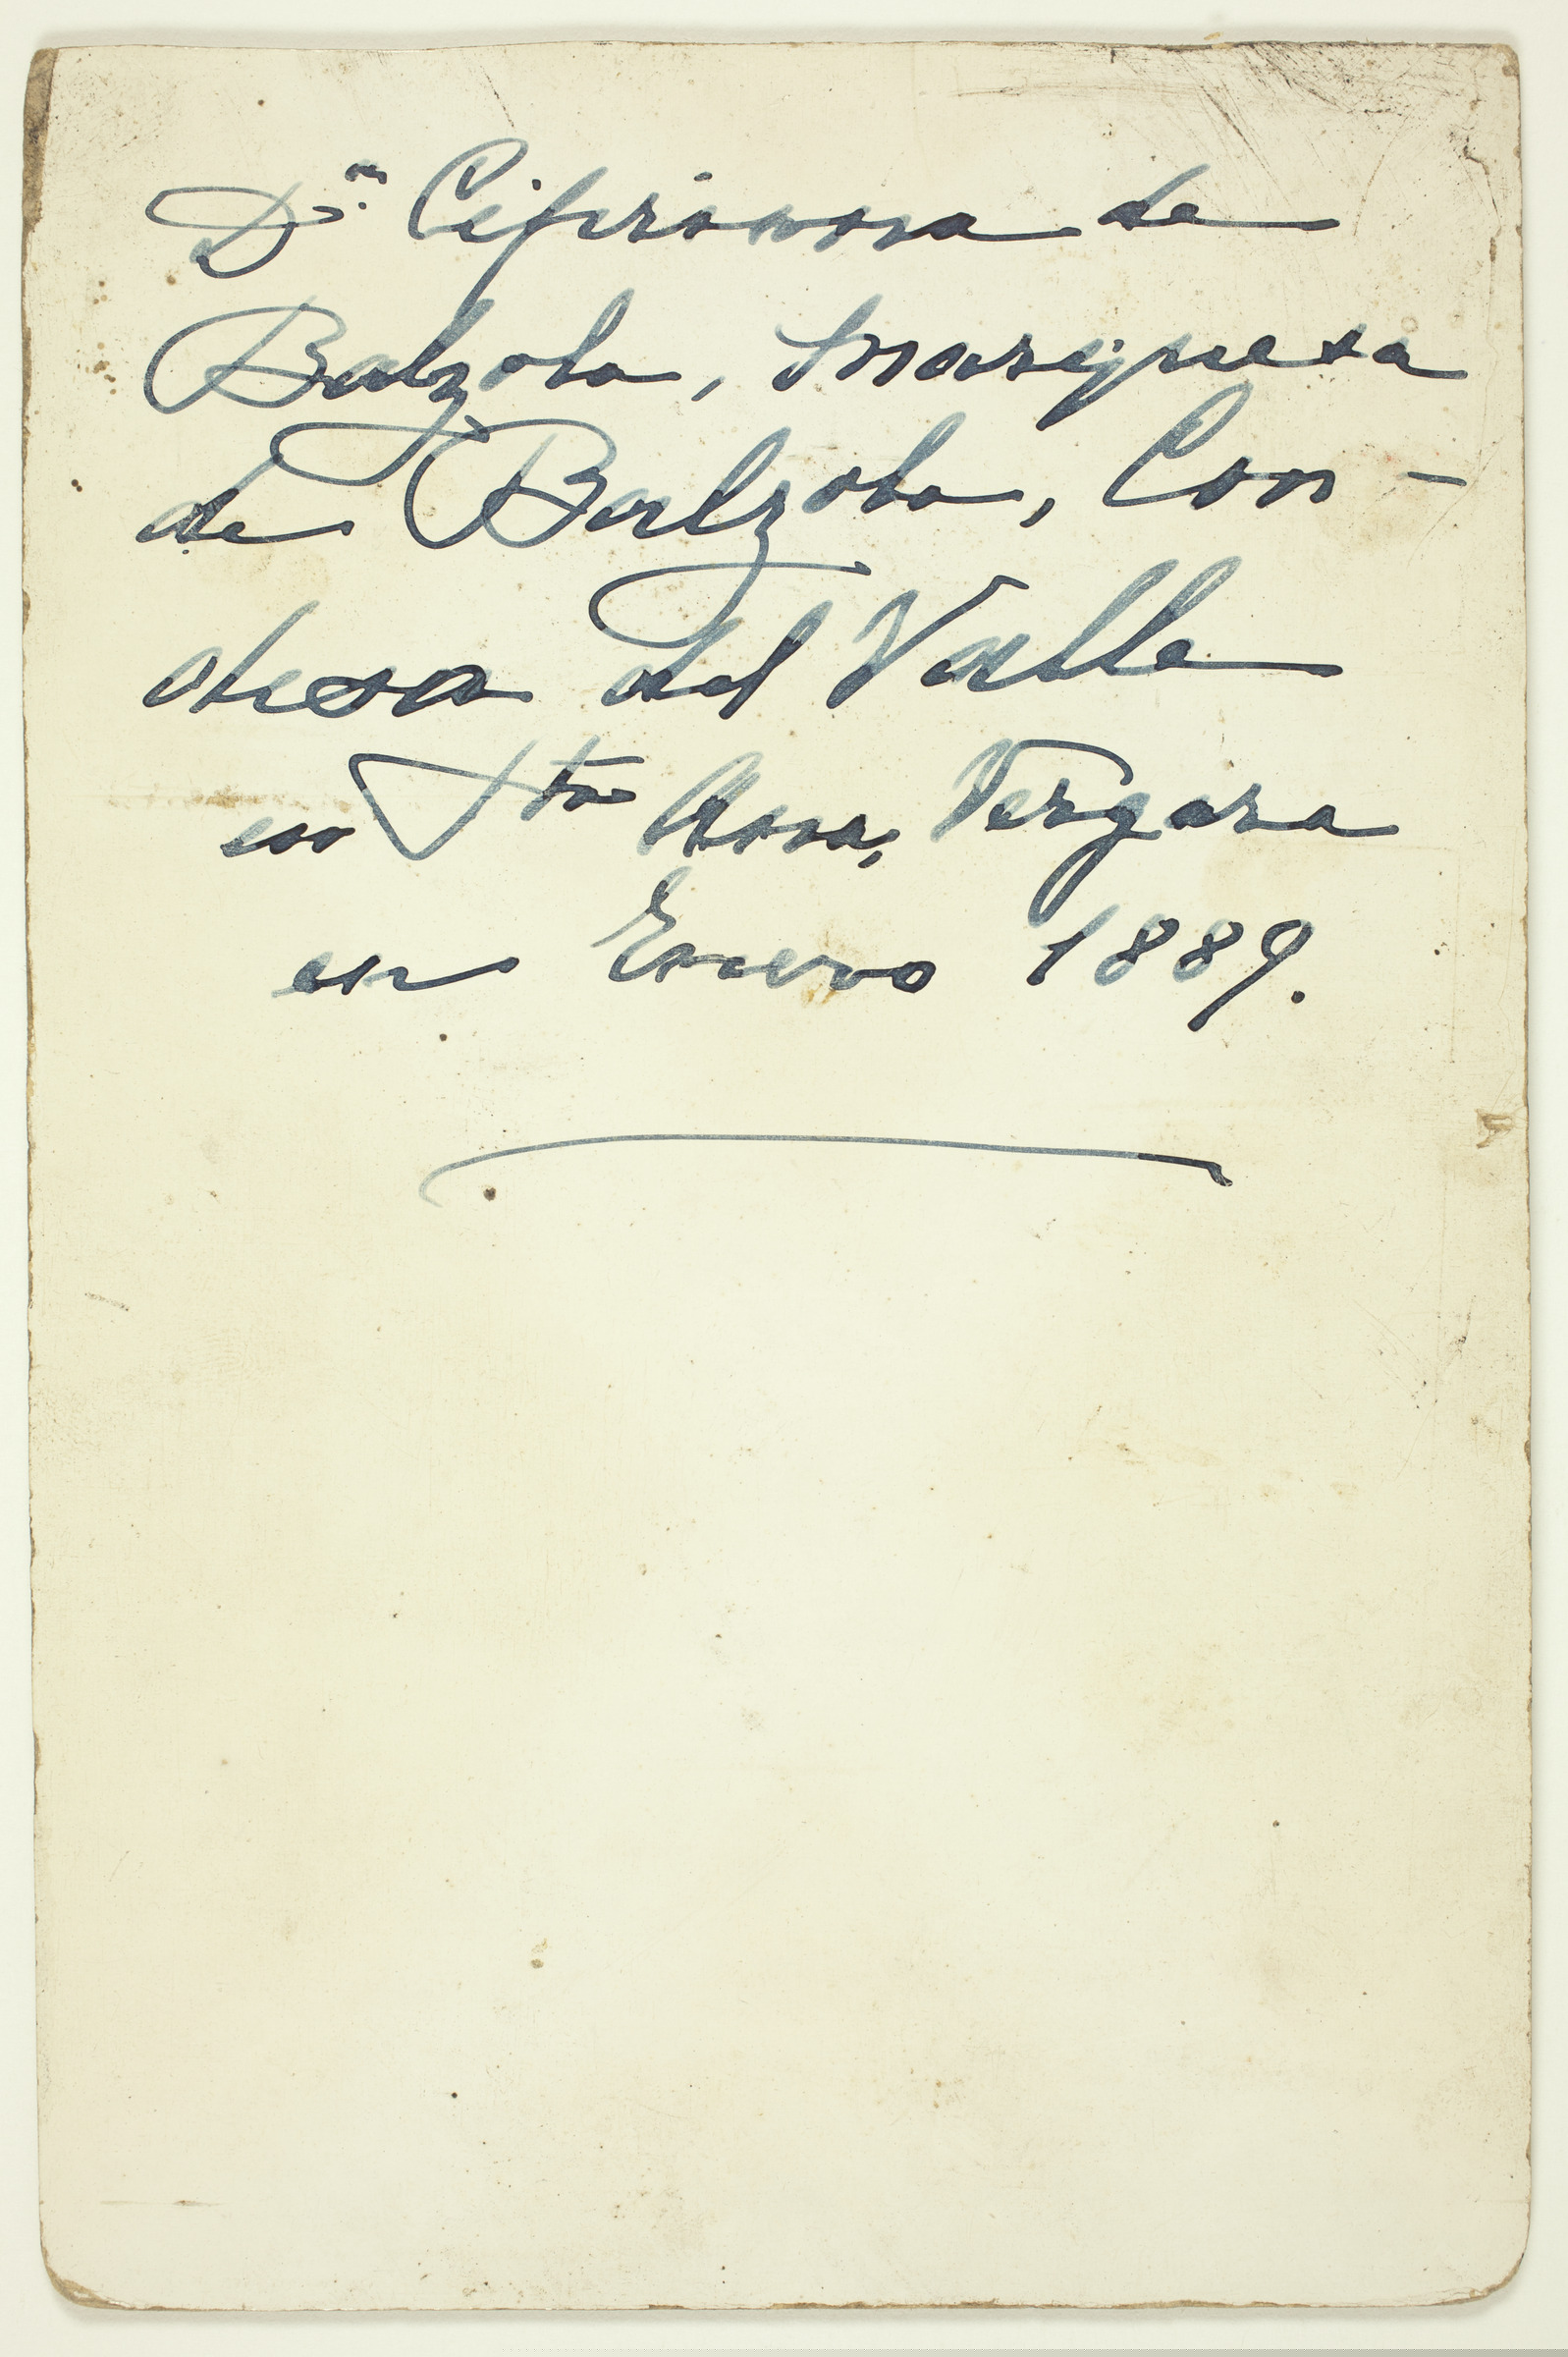 Dª. Cipriana de
Balzola, marquesa
de Balzola, Con-
desa del Valle
en Sta Ana, Vergara
en Enero 1889.